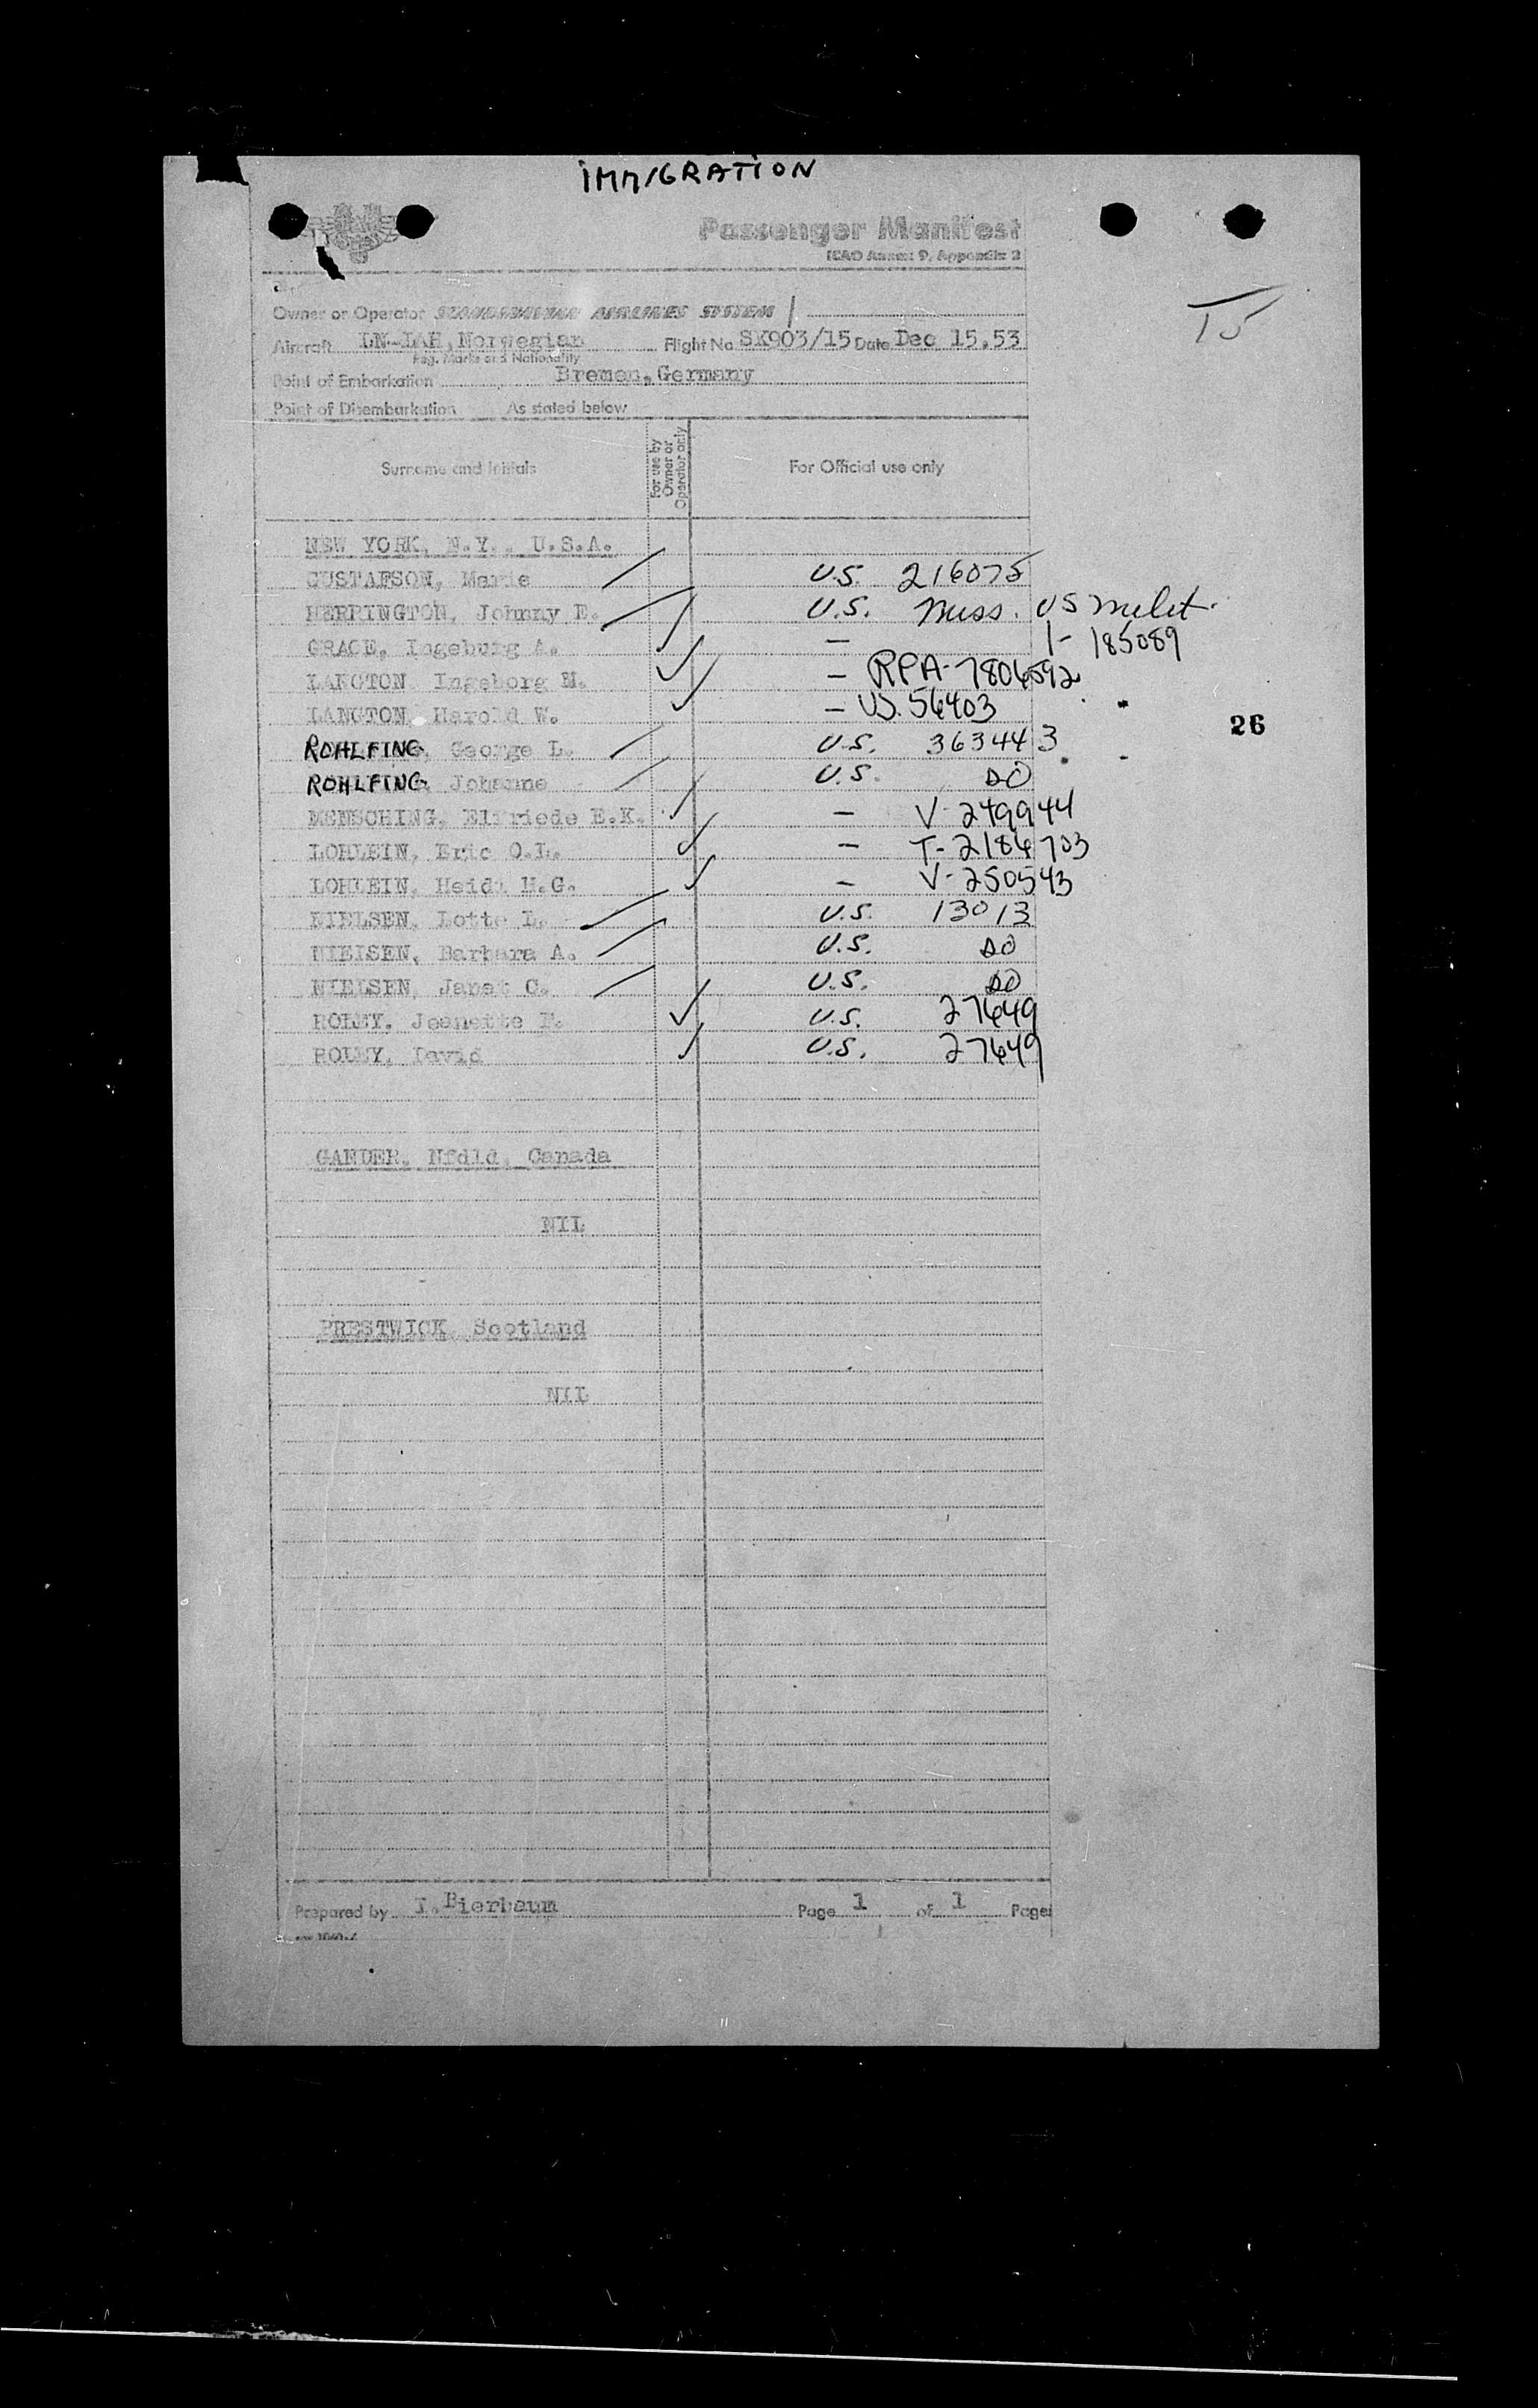 IMMIGRATION
Passenger Manifest
ICAO Annex 9, Appendix 3
TJ
Owner or Operator SCANDINAVIAN AIRLINES SYSTEM
Aircraft LN-LAH, Norwegian Flight No SK903/15 Date Dec 15.53
Reg. Marks and Nationality
Point of Embarkation Bremen, Germany
Point of Disembarkation As stated below
Surname and Initials For use by Owner or Operator only For Official use only
NEW YORK, N.Y., U.S.A.
GUSTAFSON, Marie U.S. 216075
HERRINGTON, Johnny E. U.S. Miss. US Milit.
GRACE, Ingeburg A. — I- 185089
LANGTON, Ingeborg M. — RPA-7806592
LANGTON, Harold W. — US. 56403
26
ROHLFING, George L. U.S. 363443
ROHLFING, Johanne U.S. DO
MENSCHING, Elfriede E.K. — V-249944
LOHLEIN, Eric O.L. — T-2186703
LOHLEIN, Heidi H.G. — V-250543
NIELSEN, Lotte L. U.S. 13013
NIELSEN, Barbara A. U.S. DO
NIELSEN, Janet C. U.S. DO
ROLEY, Jeanette F. U.S. 27649
ROLEY, David U.S. 27649
GANDER, Nfdld, Canada
NIL
PRESTWICK, Scotland
NIL
Prepared by I. Bierbaum Page 1 of 1 Pages